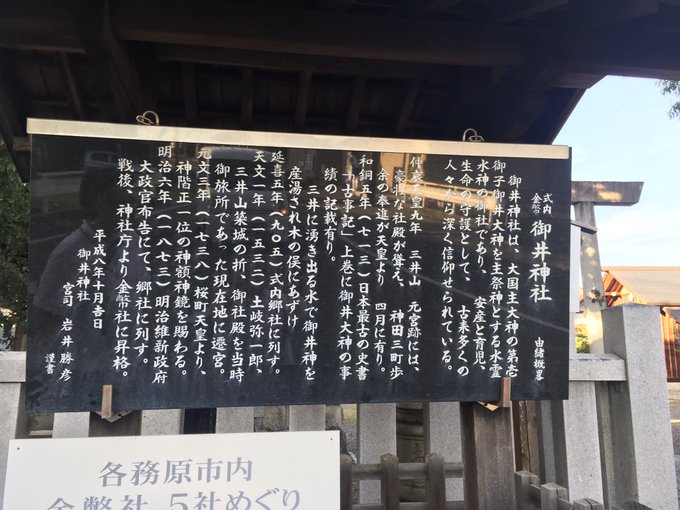 式内
金幣 御井神社 由緒概畧
御井神社は、大国主大神の第壱
御子御井大神を主祭神とする水霊
水神の御社であり、安産と育児、
生命の守護として、古来多くの
人々から深く信仰せられている。
仲哀天皇九年 三井山 元宮跡には、
豪壮な社殿が聳え、神田三町歩
余の奉進が天皇より 四月に有り。
和銅五年(七一三)日本最古の史書
「古事記」上巻に御井大神の事
績の記載有り。
三井に湧き出る水で御井神を
産湯され木の俣にあずけ
延喜五年(九〇五)式内郷社に列す。
天文一年(一五三二)土岐弥一郎、
三井山築城の折、御社殿を当時
御旅所であった現在地に遷宮。
元文三年(一七三八)桜町天皇より、
神階正一位の神額神鏡を賜わる。
明治六年(一八七三)明治維新政府
大政官布告にて、郷社に列す。
戦後、神社庁より金幣社に昇格。
平成八年十月吉日
御井神社
宮司 岩井勝彦
謹書
各務原市内
金幣社 5社めぐり